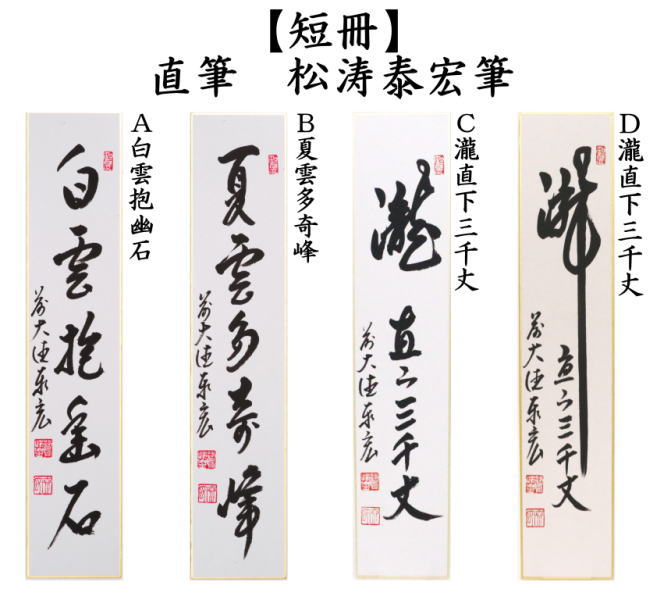 【短冊】
直筆　松涛泰宏筆
A白雲抱幽石
白雲抱幽石
前大徳泰宏
B夏雲多奇峰
夏雲多奇峰
前大徳泰宏
C瀧直下三千丈
瀧
直下三千丈
前大徳泰宏
D瀧直下三千丈
瀧
直下三千丈
前大徳泰宏